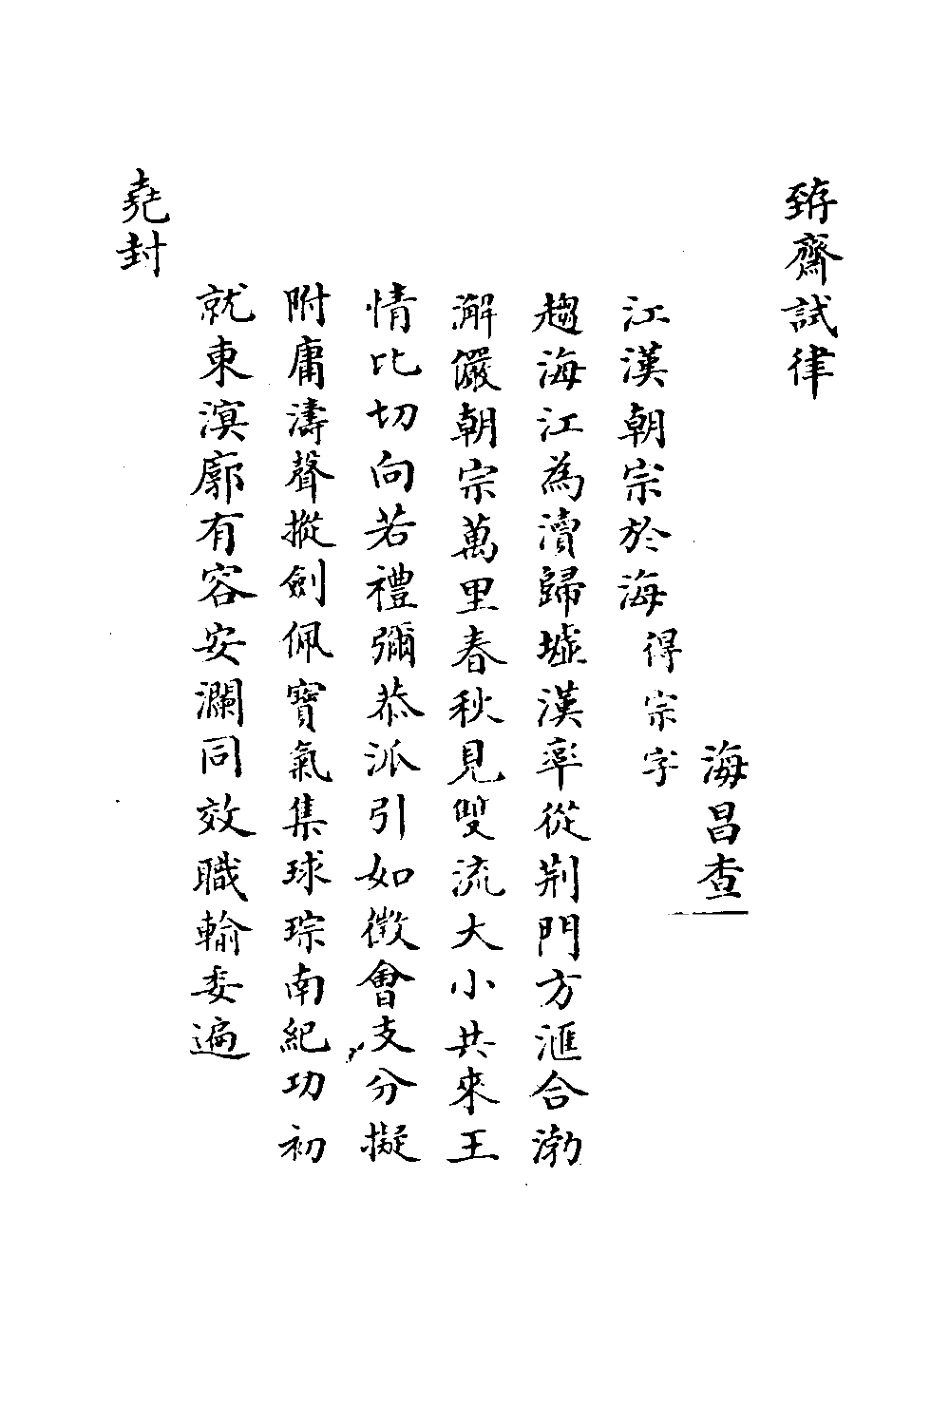 臶齋試律
海昌查
江漢朝宗於海得宗字
趨海江為瀆歸墟漢率從荆門方滙合渤
澥儼朝宗萬里春秋見雙流大小共來王
情比切向若禮彌恭派引如徵會支分擬
附庸濤聲摐劍佩寶氣集球琮南紀功初
就東溟廓有容安瀾同效職輸委遍
堯封